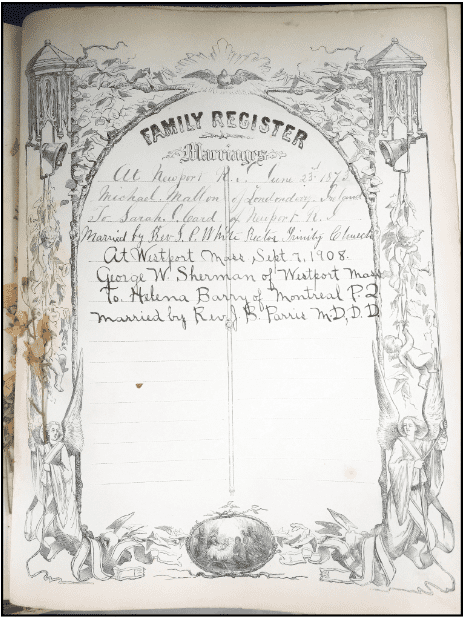 FAMILY REGISTER
Marriages
At Newport R.I. June 23d
Michael Mallon of Londonderry Ireland
To Sarah Card of Newport R.I.
Married by Rev I. P. White Rector Trinity Church
At Westport Mass, Sept 7, 1908.
George W. Sherman of Westport Mass
To. Helena Barry of Montreal P.Q
married by Rev. J. B. Parris M.D, D.D